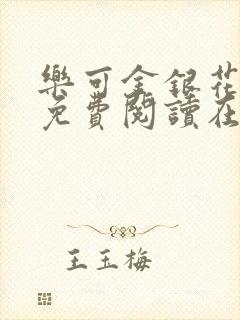 樂可金銀花
免費閱讀在
王玉梅